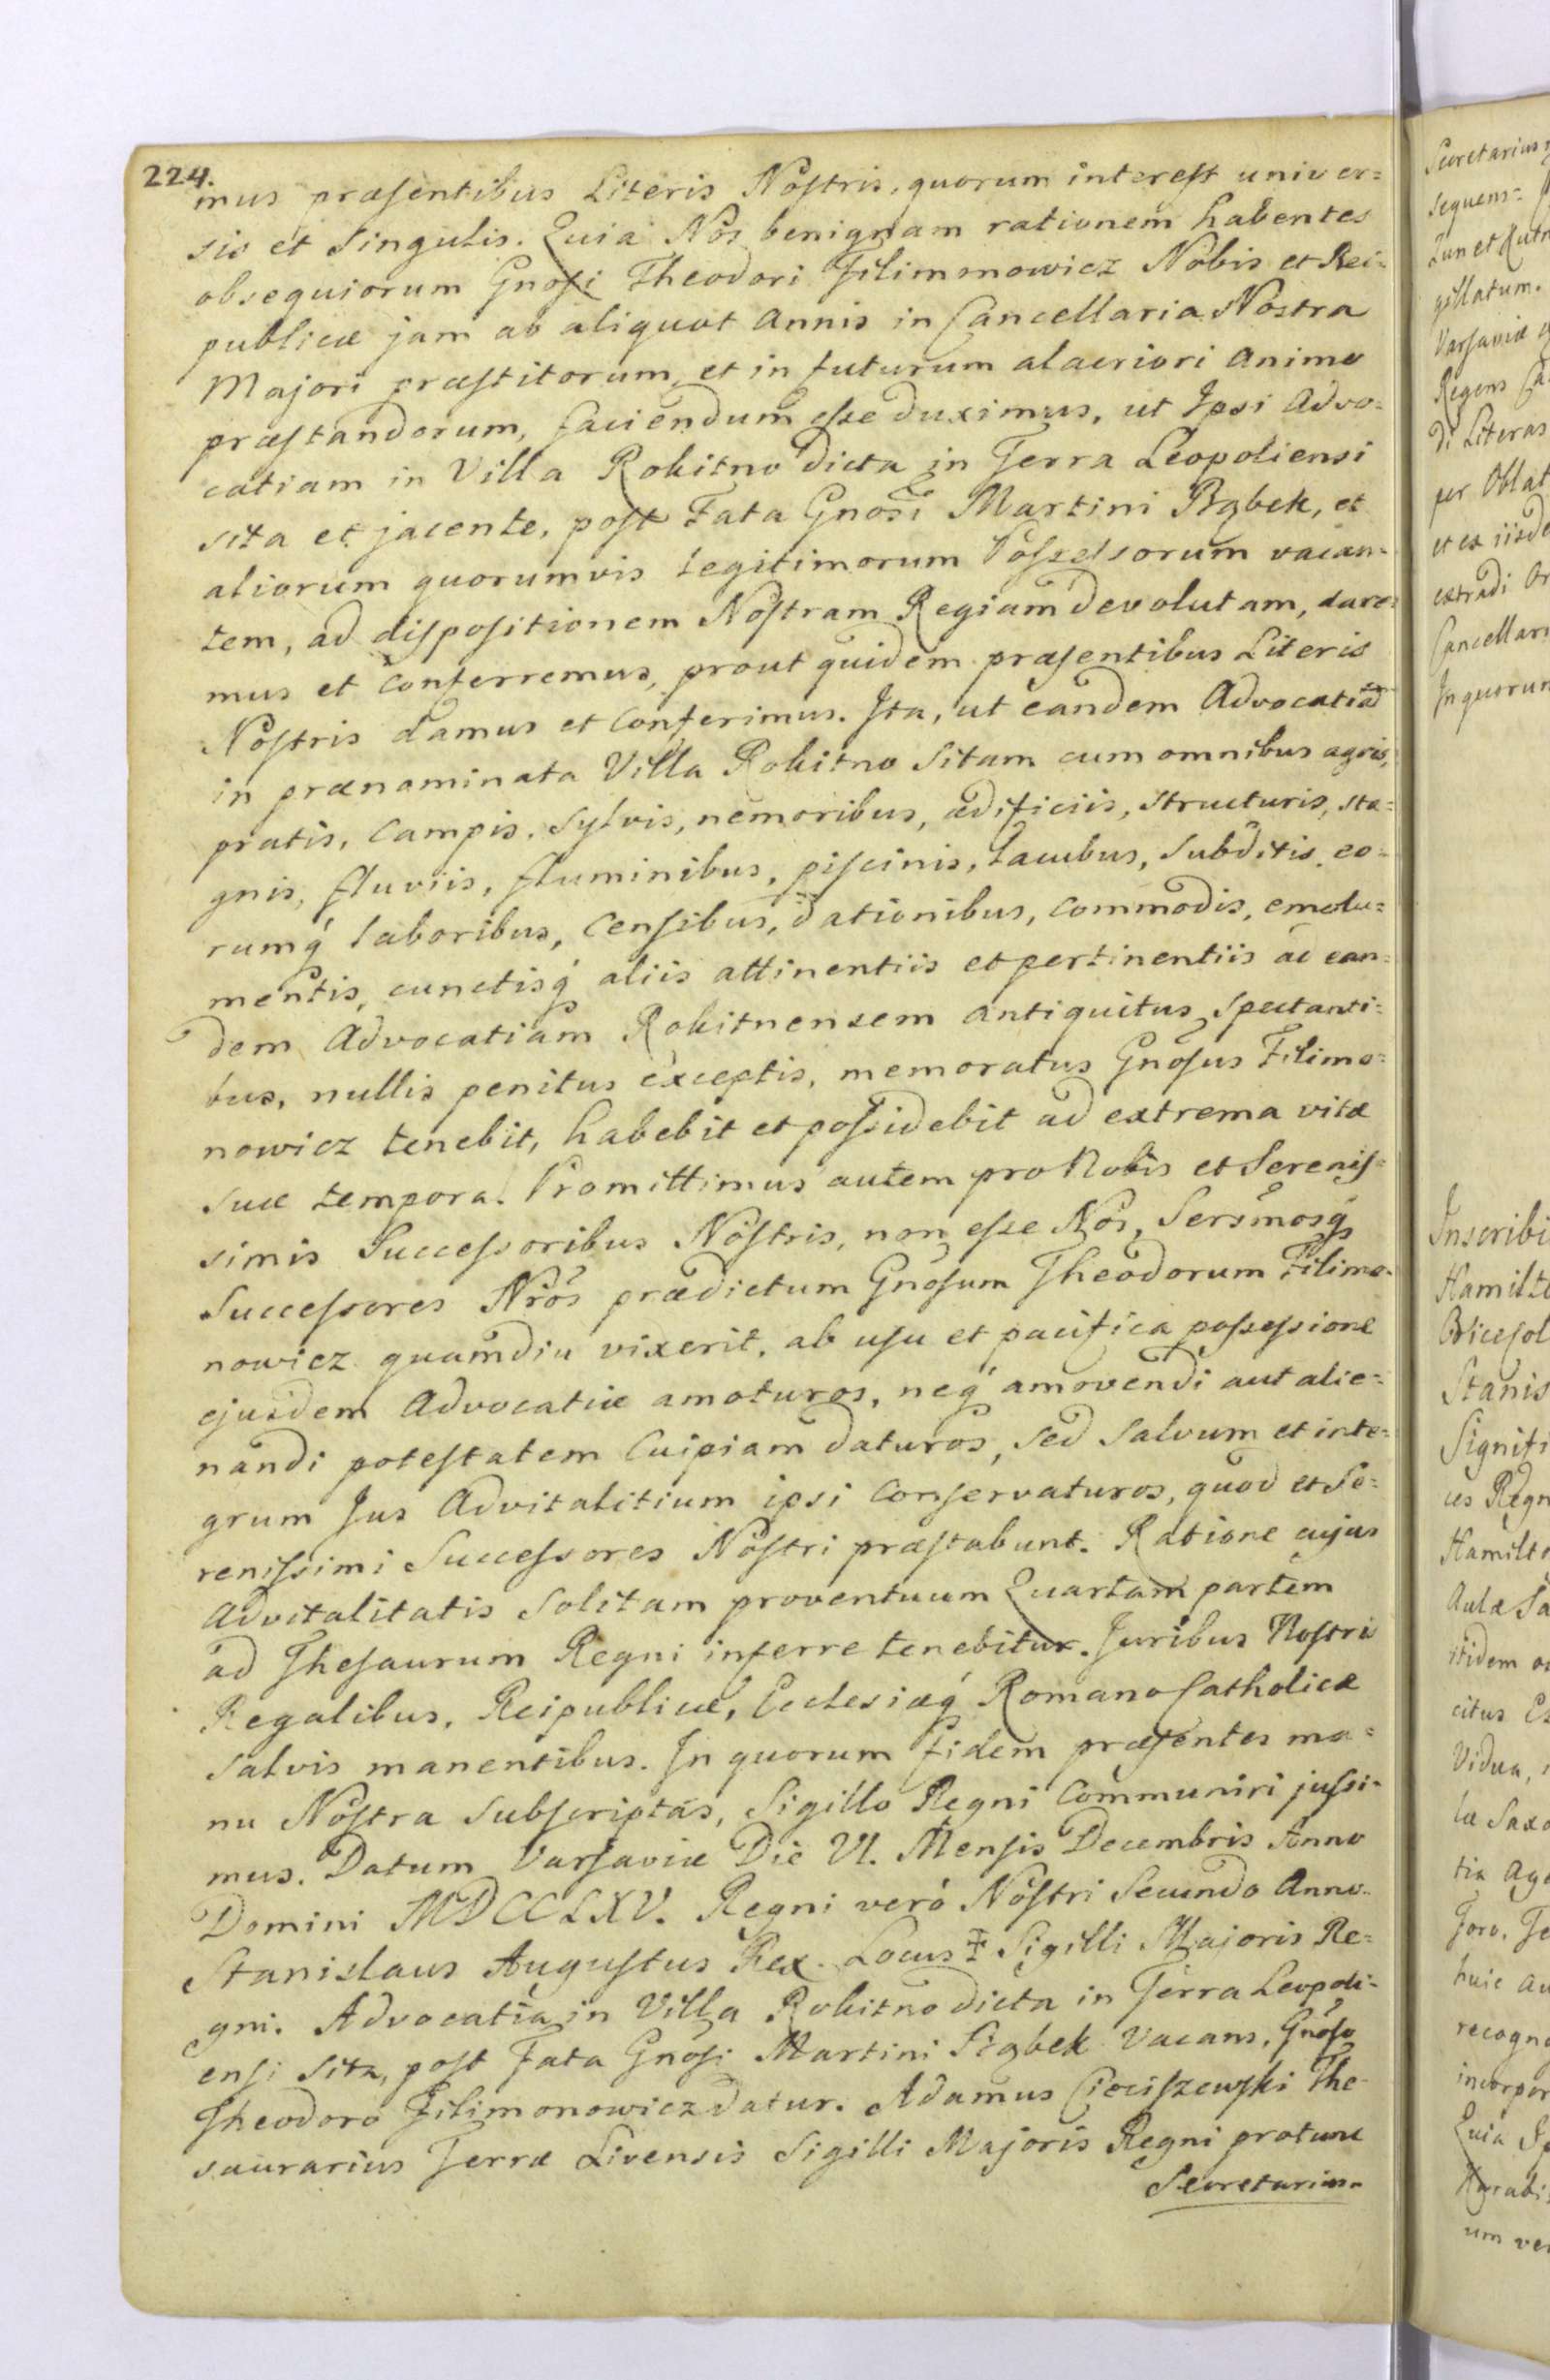 224.
mus præsentibus Literis Nostris, quorum interest univer=
sis et singulis. Quia Nos benignam rationem habentes
obsequiorum Gnosi Theodori Filimmowicz Nobis et Rei=
publicæ jam ab aliquot annis in Cancellaria Nostra
Majori præstitorum, et in futurum alacriori animo
præstandorum, faciendum esse duximus, ut Ipsi Advo=
catiam in Villa Rokitno dicta in Terra Leopoliensi
sita et jacente, post Fata Gnosi Martini Bąbek, et
aliorum quorumvis legitimorum Possessorum vacan=
tem, ad dispositionem Nostram Regiam devolutam, dare=
mus et conferremus, prout quidem præsentibus Literis
Nostris damus et conferimus. Ita, ut eandem Advocatiã
in prænominata Villa Rokitno sitam cum omnibus agris,
pratis, campis, sylvis, nemoribus, ædificiis, structuris, sta=
gnis, fluviis, fluminibus, piscinis, lacubus, subditis, eo=
rumq́ laboribus, censibus, dationibus, commodis, emolu=
mentis, cunctisq́ aliis attinentiis et pertinentiis ad ean=
dem Advocatiam Rokitnensem antiquitus spectanti=
bus, nullis penitus exceptis, memoratus Gnosus Filimo=
nowicz tenebit, habebit et possidebit ad extrema vitæ
suæ tempora. Promittimus autem pro Nobis et Serenis=
simis Successoribus Nostris, non esse Nos, Sersmosq́
Successores Nros prædictum Gnosum Theodorum Filimo=
nowicz quamdiu vixerit, ab usu et pacifica possessione
ejusdem Advocatiæ amoturos, neq́ amovendi aut alie=
nandi potestatem cuipiam daturos, sed salvum et inte=
grum Jus Advitalitium ipsi conservaturos, quod et Se=
renissimi Successores Nostri præstabunt. Ratione cujus
Advitalitatis solitam proventuum Quartam partem
ad Thesaurum Regni inferre tenebitur. Juribus Nostris
Regalibus, Reipublicæ, Ecclesiæq́ Romano Catholicæ
salvis manentibus. In quorum fidem præsentes ma=
nu Nostra subscriptas, Sigillo Regni communiri jussi=
mus. Datum Varsaviæ Die VI. Mensis Decembris Anno
Domini MDCCLXV. Regni verò Nostri Secundo Anno.
Stanislaus Augustus Rex. Locus ‡ Sigilli Majoris Re=
gni. Advocatia in Villa Rokitno dicta in Terra Leopoli=
ensi sita, post Fata Gnosi Martini vacans, Gnoso
Theodoro Filimonowicz datur. Adamus Ciociszewski The=
saurarius Terræ Livensis Sigilli Majoris Regni protunc
Secretarius.
Secretarius
sequens=
gillatum.
Varsaviæ
Regens
di Literas
per Oblat
et ex iisde
extradi Or
Cancellari
In quorum
Inscribi
Hamilto
Stanis
Signifi
Hamilto
itidem
citus
Vidua,
Foro,
huic
recogno
incorpor
Quia